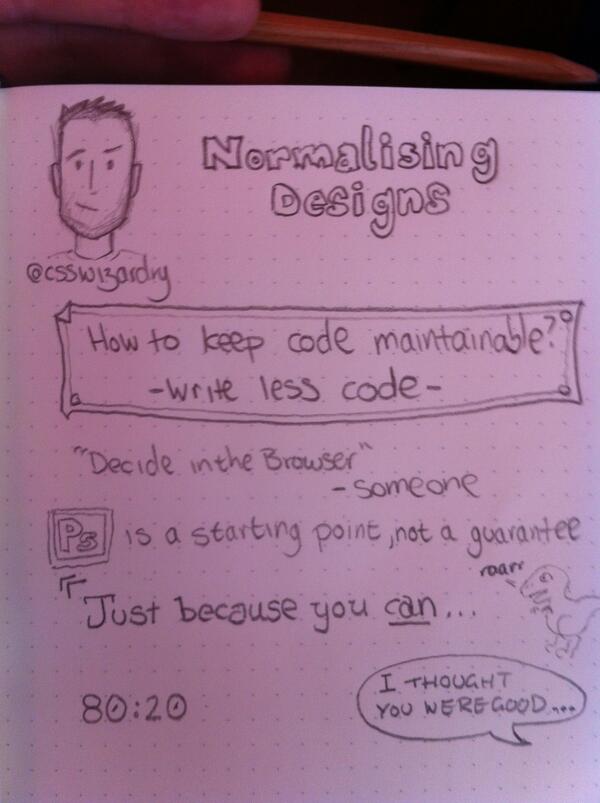 Normalising
Designs
@csswizardry
How to keep code maintainable?
-write less code-
"Decide in the Browser"
- someone
Ps is a starting point, not a guarantee
roarr
"Just because you can...
80:20
I THOUGHT
YOU WERE GOOD...